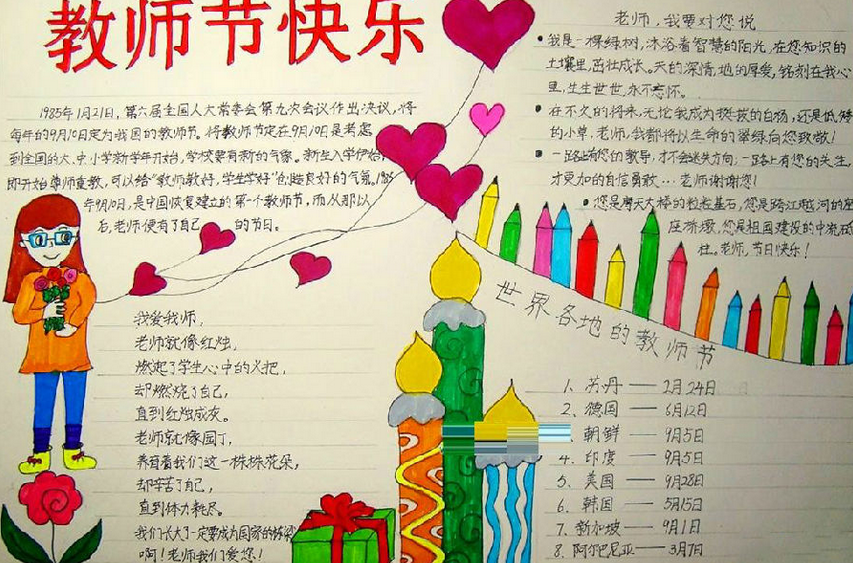 教师节快乐
1985年1月21日,第六届全国人大常委会第九次会议作出决议,将
每年的9月10日定为我国的教师节。将教师节定在9月10日是考虑
到全国的大、中、小学新学年开始,学校要有新的气象。新生入学伊始,
即开始尊师重教,可以给“教师教好,学生学好”创造良好的气氛。
年9月10日,是中国恢复建立的第一个教师节,而从那以
后,老师便有了自己的节日。
我爱我师,
老师就像红烛,
燃起了学生心中的火把,
却燃烧了自己,
直到红烛成灰。
老师就像园丁,
养育着我们这一株株花朵,
却辛苦了自己,
直到体力耗尽。
我们长大了一定要成为国家的栋梁
啊!老师我们爱您!
老师,我要对您说
我是一棵绿树,沐浴着智慧的阳光,在您知识的
土壤里,茁壮成长。天的深情,地的厚爱,铭刻在我心
里,生生世世,永不忘怀。
在不久的将来,无论我成为挺拔的白杨,还是低矮
的小草,老师,我都将以生命的翠绿向您致敬!
一路上有您的教导,才不会迷失方向;一路上有您的关注,
才更加的自信勇敢…老师谢谢您!
您是摩天大楼的粒粒基石,您是跨江越河的座
座桥墩,您是祖国建设的中流砥
柱。老师,节日快乐!
世界各地的教师节
1、苏丹——2月24日
2、德国——6月12日
朝鲜——9月5日
4、印度——9月5日
5、美国——9月28日
6、韩国——5月15日
7、新加坡——9月1日
8、阿尔巴尼亚——3月7日